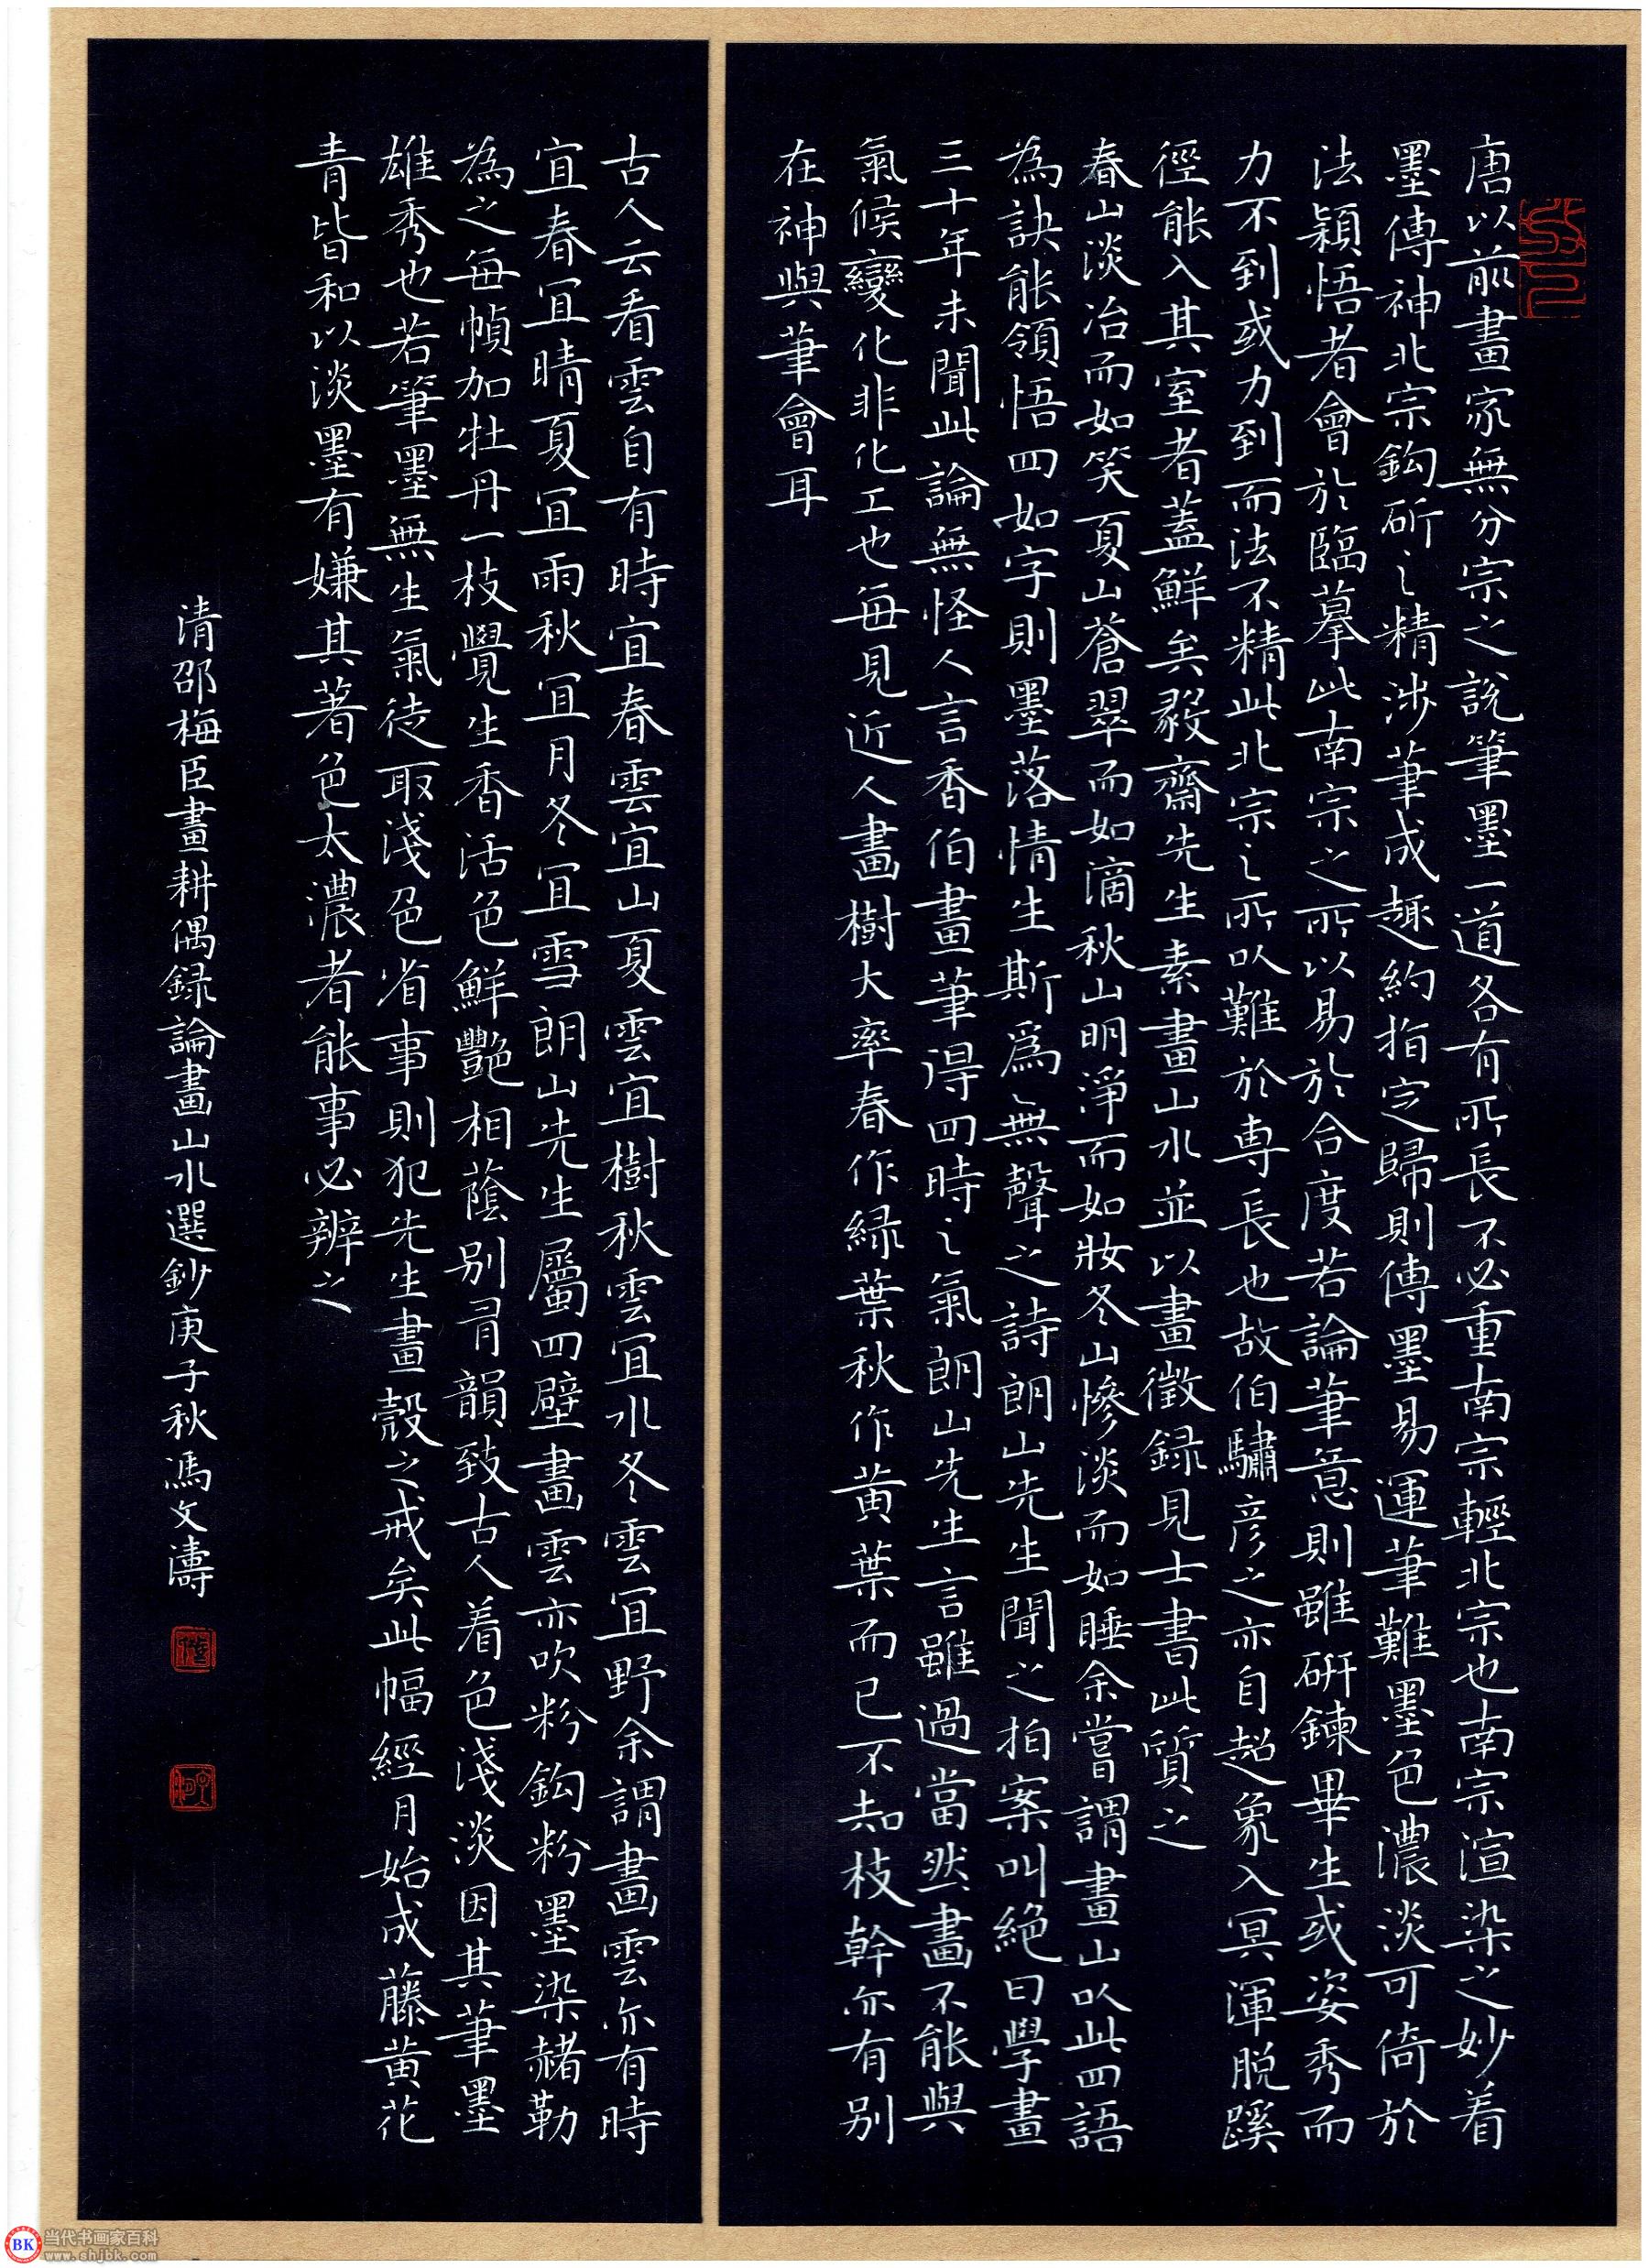 唐以前畫家無分宗之說筆墨一道各有所長不必重南宗輕北宗也南宗渲染之妙着
墨傳神北宗鈎斫之精涉筆成趣約指定歸則傳墨易運筆難墨色濃淡可倚於
法穎悟者會於臨摹此南宗之所以易於合度若論筆意則雖研鍊畢生或姿秀而
力不到或力到而法不精此北宗之所以難於專長也故伯驌彥之亦自超象入冥渾脫蹊
徑能入其室者蓋鮮矣毅齋先生素畫山水並以畫徵録見士書此質之
春山淡冶而如笑夏山蒼翠而如滴秋山明淨而如妝冬山慘淡而如睡余嘗謂畫山以此四語
為訣能領悟四如字則墨落情生斯爲無聲之詩朗山先生聞之拍案叫絕曰學畫
三十年未聞此論無怪人言香伯畫筆得四時之氣朗山先生言雖過當然畫不能與
氣候變化非化工也每見近人畫樹大率春作緑葉秋作黃葉而已不知枝幹亦有别
在神與筆會耳
古人云看雲自有時宜春雲宜山夏雲宜樹秋雲宜水冬雲宜野余謂畫雲亦有時
宜春宜晴夏宜雨秋宜月冬宜雪朗山先生屬四壁畫雲亦吹粉鈎粉墨染赭勒
為之每幀加牡丹一枝覺生香活色鮮艷相蔭别有韻致古人着色淺淡因其筆墨
雄秀也若筆墨無生氣徒取淺色省事則犯先生畫殼之戒矣此幅經月始成藤黃花
青皆和以淡墨有嫌其著色太濃者能事必辨之
清邵梅臣畫耕偶録論畫山水選鈔庚子秋馮文濤
BK 当代书画家百科
www.shjbk.com